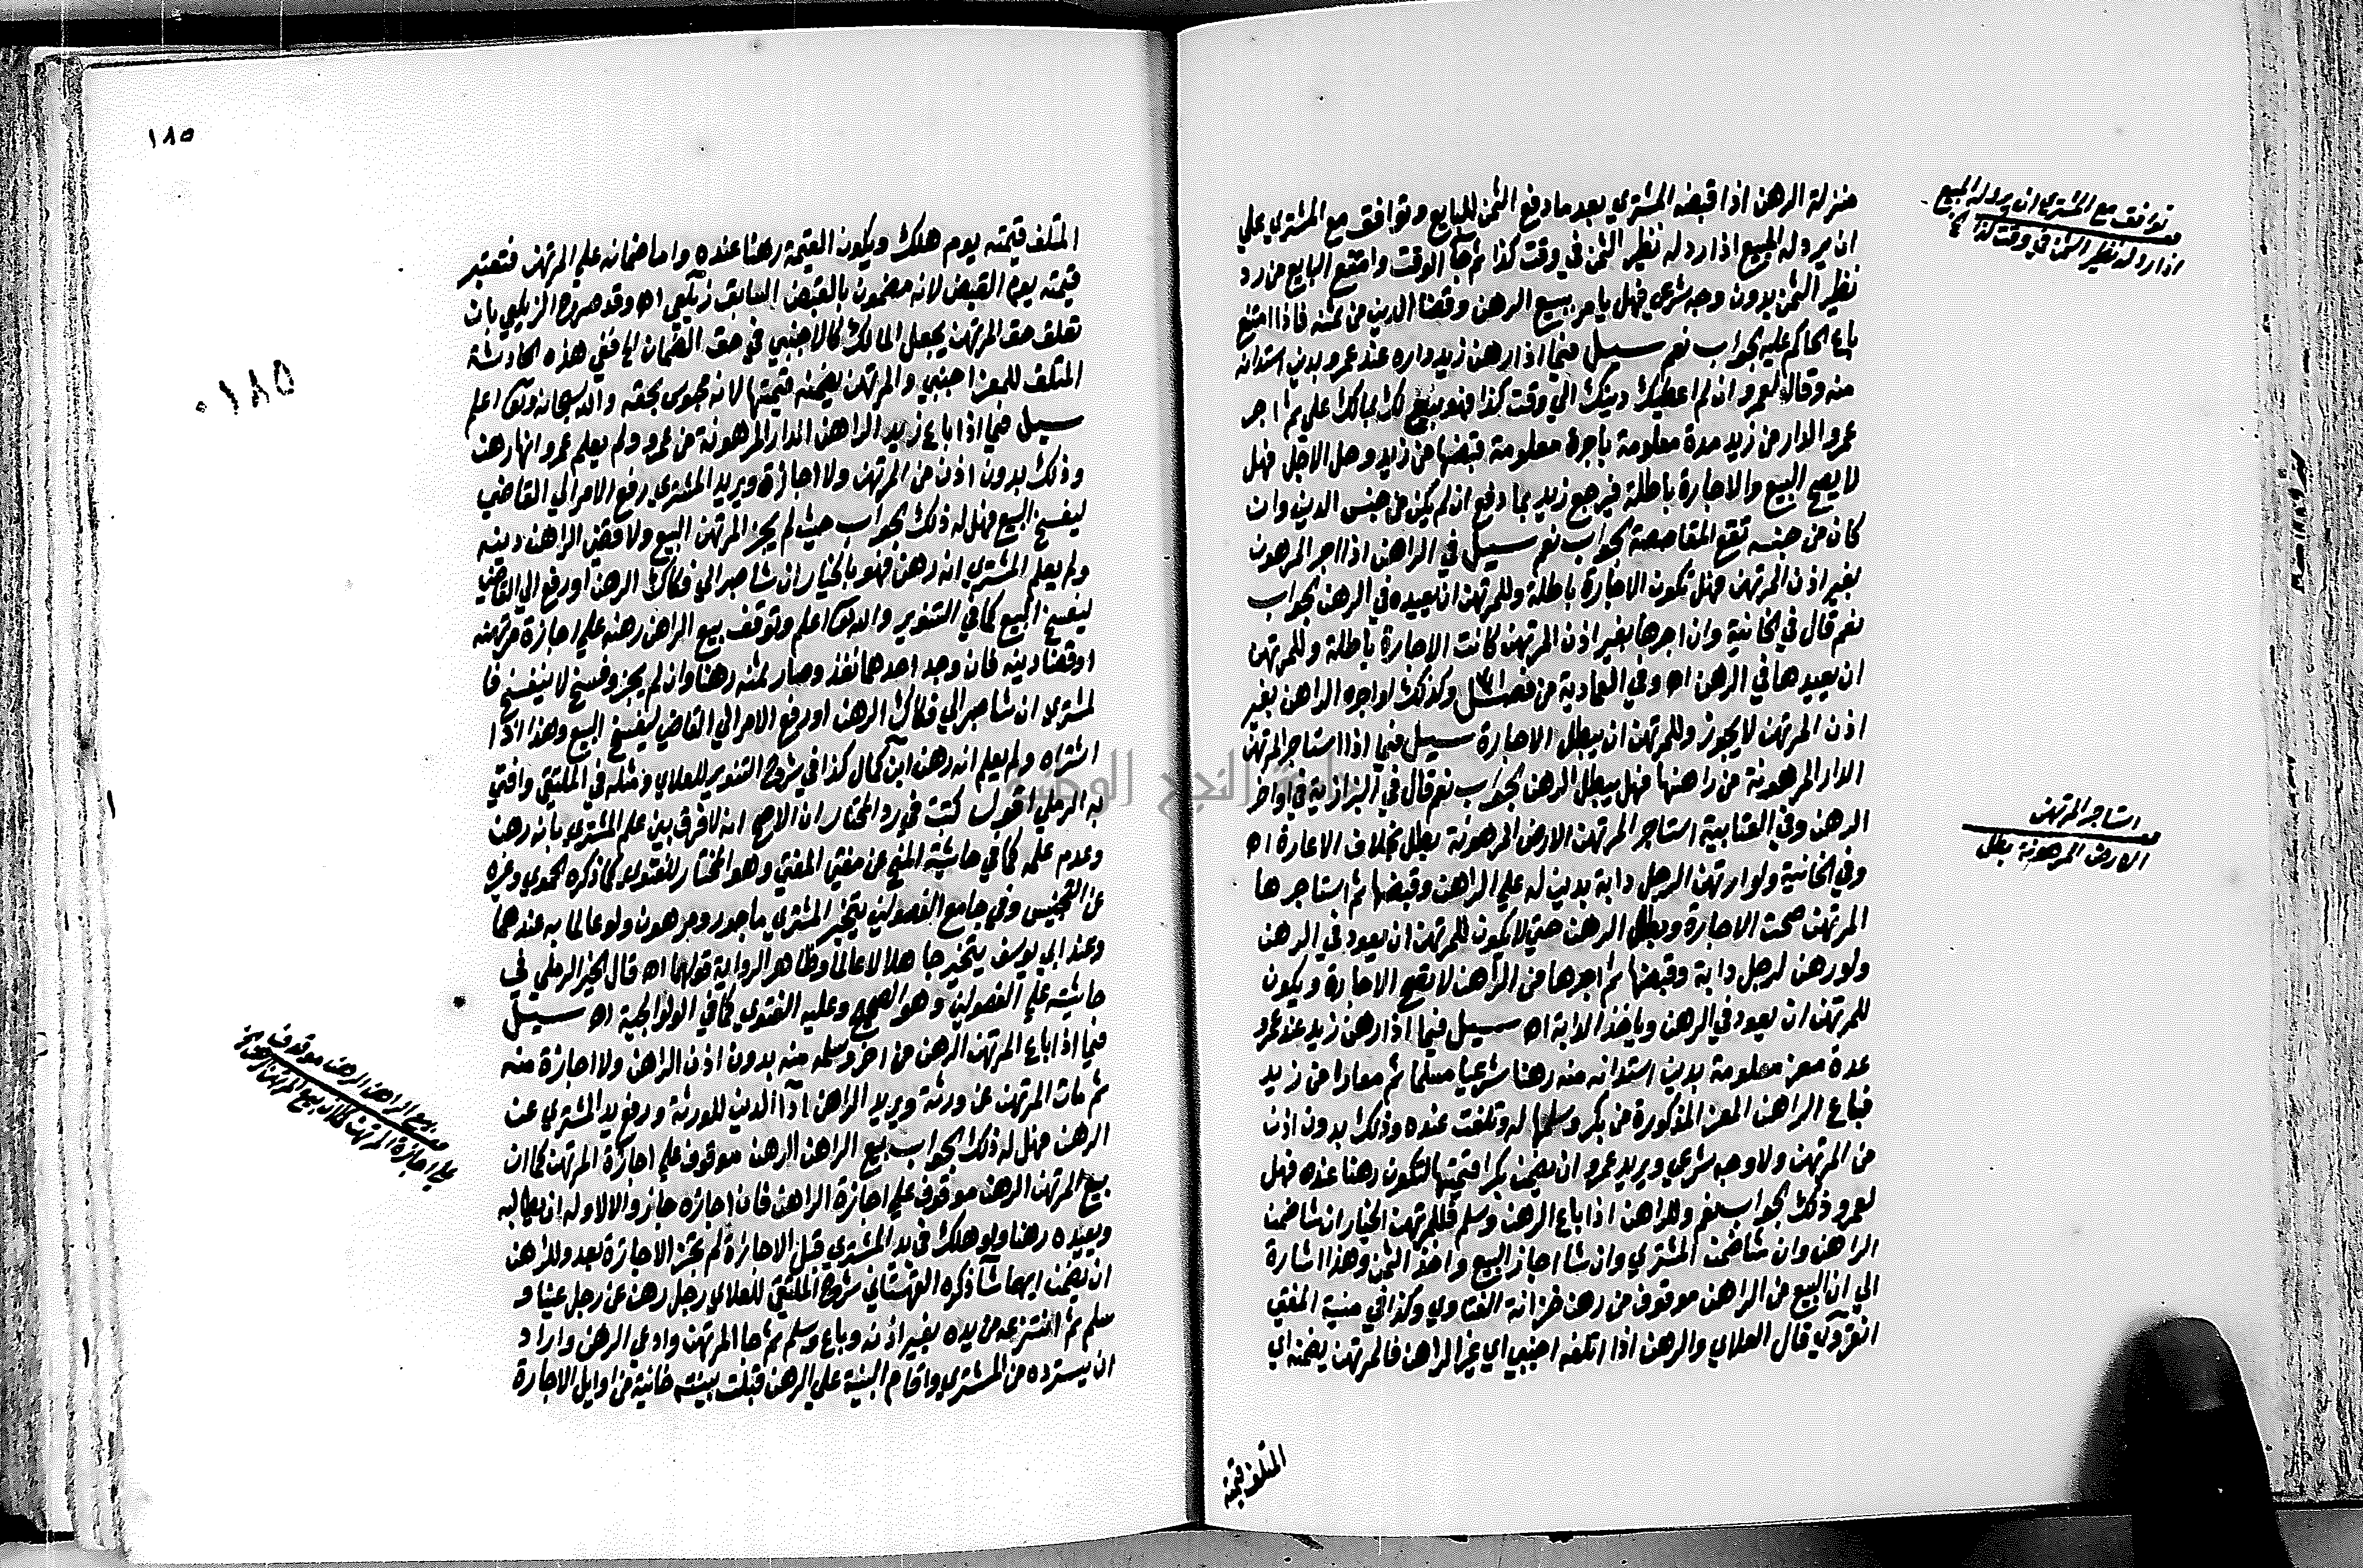 منزلة الرهن اذا قبضه المشتري بعد ما دفع الثمن للبايع وتوافق مع المشتري علي
ان يرد له المبيع اذا رد له نظير الثمن في وقت كذا ثم جآ الوقت وامتنع البايع من رد
نظير الثمن بدون وجه شرعي فهل يامر ببيع الرهن وقضا الدين من ثمنه فاذا امتنع
باع الحاكم عليه الجواب نعم سيل فيما اذا رهن زيد داره عند عمرو بدين استدانه
منه وقال لعمرو ان لم اعطيك دينك الي وقت كذا فهو بيع لك بمالك علي ثم اجر
عمرو الدار من زيد مدة معلومة باجرة معلومة قبضها من زيد وحل الاجل فهل
لا يصح البيع والاجارة باطلة فيرجع زيد بما دفع ان لم يكن من جنس الدين وان
كان من جنسه تقع المقاصصة الجواب نعم سيل في الراهن اذا اجر المرهون
بغير اذن المرتهن فهل تكون الاجارة باطلة وللمرتهن ان يعيده في الرهن الجواب
نعم قال في الخانية وان اجرها بغير اذن المرتهن كانت الاجارة باطلة وللمرتهن
ان يعيدها في الرهن اه وفي العمادية من فصل وكذلك لو اجره الراهن بغير
اذن المرتهن لا يجوز وللمرتهن ان يبطل الاجارة سيل فيما اذا استاجر المرتهن
الدار المرهونة من راهنها فهل يبطل الرهن الجواب نعم قال في البزازية في اواخر
الرهن وفي العتابية استاجر المرتهن الارض المرهونة بطل بخلاف الاعارة اه
وفي الخانية ولو ارتهن الرجل دابة بدين له علي الراهن وقبضها ثم استاجرها
المرتهن صحت الاجارة وبطل الرهن حتي لا يكون للمرتهن ان يعود في الرهن
ولو رهن لرجل دابة وقبضها ثم اجرها من الراهن لا تصح الاجارة ويكون
للمرتهن ان يعود في الرهن وياخذ الدابة اه سيل فيما اذا رهن زيد عند عمرو
عدة معز معلومة بدين استدانه منه رهنا شرعيا مسلما ثم معادا من زيد
فباع الراهن المعز المذكورة من بكر وسلمها له وتلفت عنده وذلك بدون اذن
من المرتهن ولا وجه شرعي ويريد عمرو ان يضمن بكرا قيمتها لتكون رهنا عنده فهل
لعمرو ذلك الجواب نعم وللراهن اذا باع الرهن وسلم فللمرتهن الخيار ان شا ضمن
الراهن وان شا ضمن المشتري وان شا اجاز البيع واخذ الثمن وهذا اشارة
الي ان البيع من الراهن موقوف من رهن خزانة الفتاوي وكذا في منية المفتي
انقروي قال العلاي والرهن اذا اتلفه اجنبي اي غير الراهن فالمرتهن يضمنه اي
المتلف قيمته
توافق مع المشتري ان يرد له المبيع
اذا رد له نظير الثمن في وقت كذا
استاجر المرتهن
الارض المرهونة بطل
١٨٥
٠١٨٥
المتلف قيمته يوم هلك ويكون القيمة رهنا عنده واما ضمانه علي المرتهن فتعتبر
قيمته يوم القبض لانه مضمون بالقبض السابق زيلعي اه وقد صرح الزيلعي بان
تعلق حق المرتهن يجعل المالك كالاجنبي في حق الضمان الخ ففي هذه الحادثة
المتلف للمعز اجنبي والمرتهن يضمنه قيمتها لانه محبوس بحقه والله سبحانه وتعا اعلم
سيل فيما اذا باع زيد الراهن الدار المرهونة من عمرو ولم يعلم عمرو انها رهن
وذلك بدون اذن من المرتهن ولا اجازة ويريد المشتري رفع الامر الي القاضي
ليفسخ البيع فهل له ذلك الجواب حيث لم يجز المرتهن البيع ولا قضي الراهن دينه
ولم يعلم المشتري انه رهن فهو بالخيار ان شا صبر الي فكاك الرهن او رفع الي القاضي
ليفسخ البيع كما في التنوير والله تعا اعلم وتوقف بيع الراهن رهنه علي اجازة مرتهنه
او قضا دينه فان وجد احدهما نفذ وصار ثمنه رهنا وان لم يجز وفسخ لا ينفسخ فا
لمشتري ان شا صبر الي فكاك الرهن او رفع الامر الي القاضي ليفسخ البيع وهذا اذا
اشتراه ولم يعلم انه رهن ابن كمال كذا في شرح التنوير للعلاي ومثله في الملتقي وافتي
به الرملي اقول كتبت في رد المحتار ان الاصح انه لا فرق بين علم المشتري بانه رهن
وعدم علمه كما في حاشية المنح عن مفتي وهو المختار للفتوي كما ذكره الحموي وغيره
عن التجنيس وفي جامع الفصولين يتخير المشتري ماجور ومرهون ولو عالما به عندهما
وعند ابي يوسف يتخير جاهلا لا عالما وظاهر الرواية قولهما اه قال الخير الرملي في
حاشيته علي الفصولين وهو الصحيح وعليه الفتوي كما في الولوالجية اه سيل
فيما اذا باع المرتهن الرهن من اخر وسلمه منه بدون اذن الراهن ولا اجازة منه
ثم مات المرتهن عن ورثة ويريد الراهن ادآ الدين للورثة ورفع يد المشتري عن
الرهن فهل له ذلك الجواب بيع الراهن الرهن موقوف علي اجازة المرتهن كما ان
بيع المرتهن الرهن موقوف علي اجازة الراهن فان اجازه جاز والا لا وله ان يطالبه
ويعيده رهنا ولو هلك في يد المشتري قبل الاجازة لم تجز الاجازة بعد وللراهن
ان يضمن ايهما شآ ذكره القهستاني شرح الملتقي للعلاي رجل رهن عن رجل عينا و
سلم ثم انتزعه من يده بغير اذنه وباع وسلم ثم جا المرتهن وادعي الرهن واراد
ان يسترده من المشتري واقام البينة علي الرهن قبلت بينته خانية من اوايل الاجارة
بيع الراهن الرهن موقوف
علي اجازة المرتهن كما ان بيع المرتهن
جامعة النجاح الوطنية